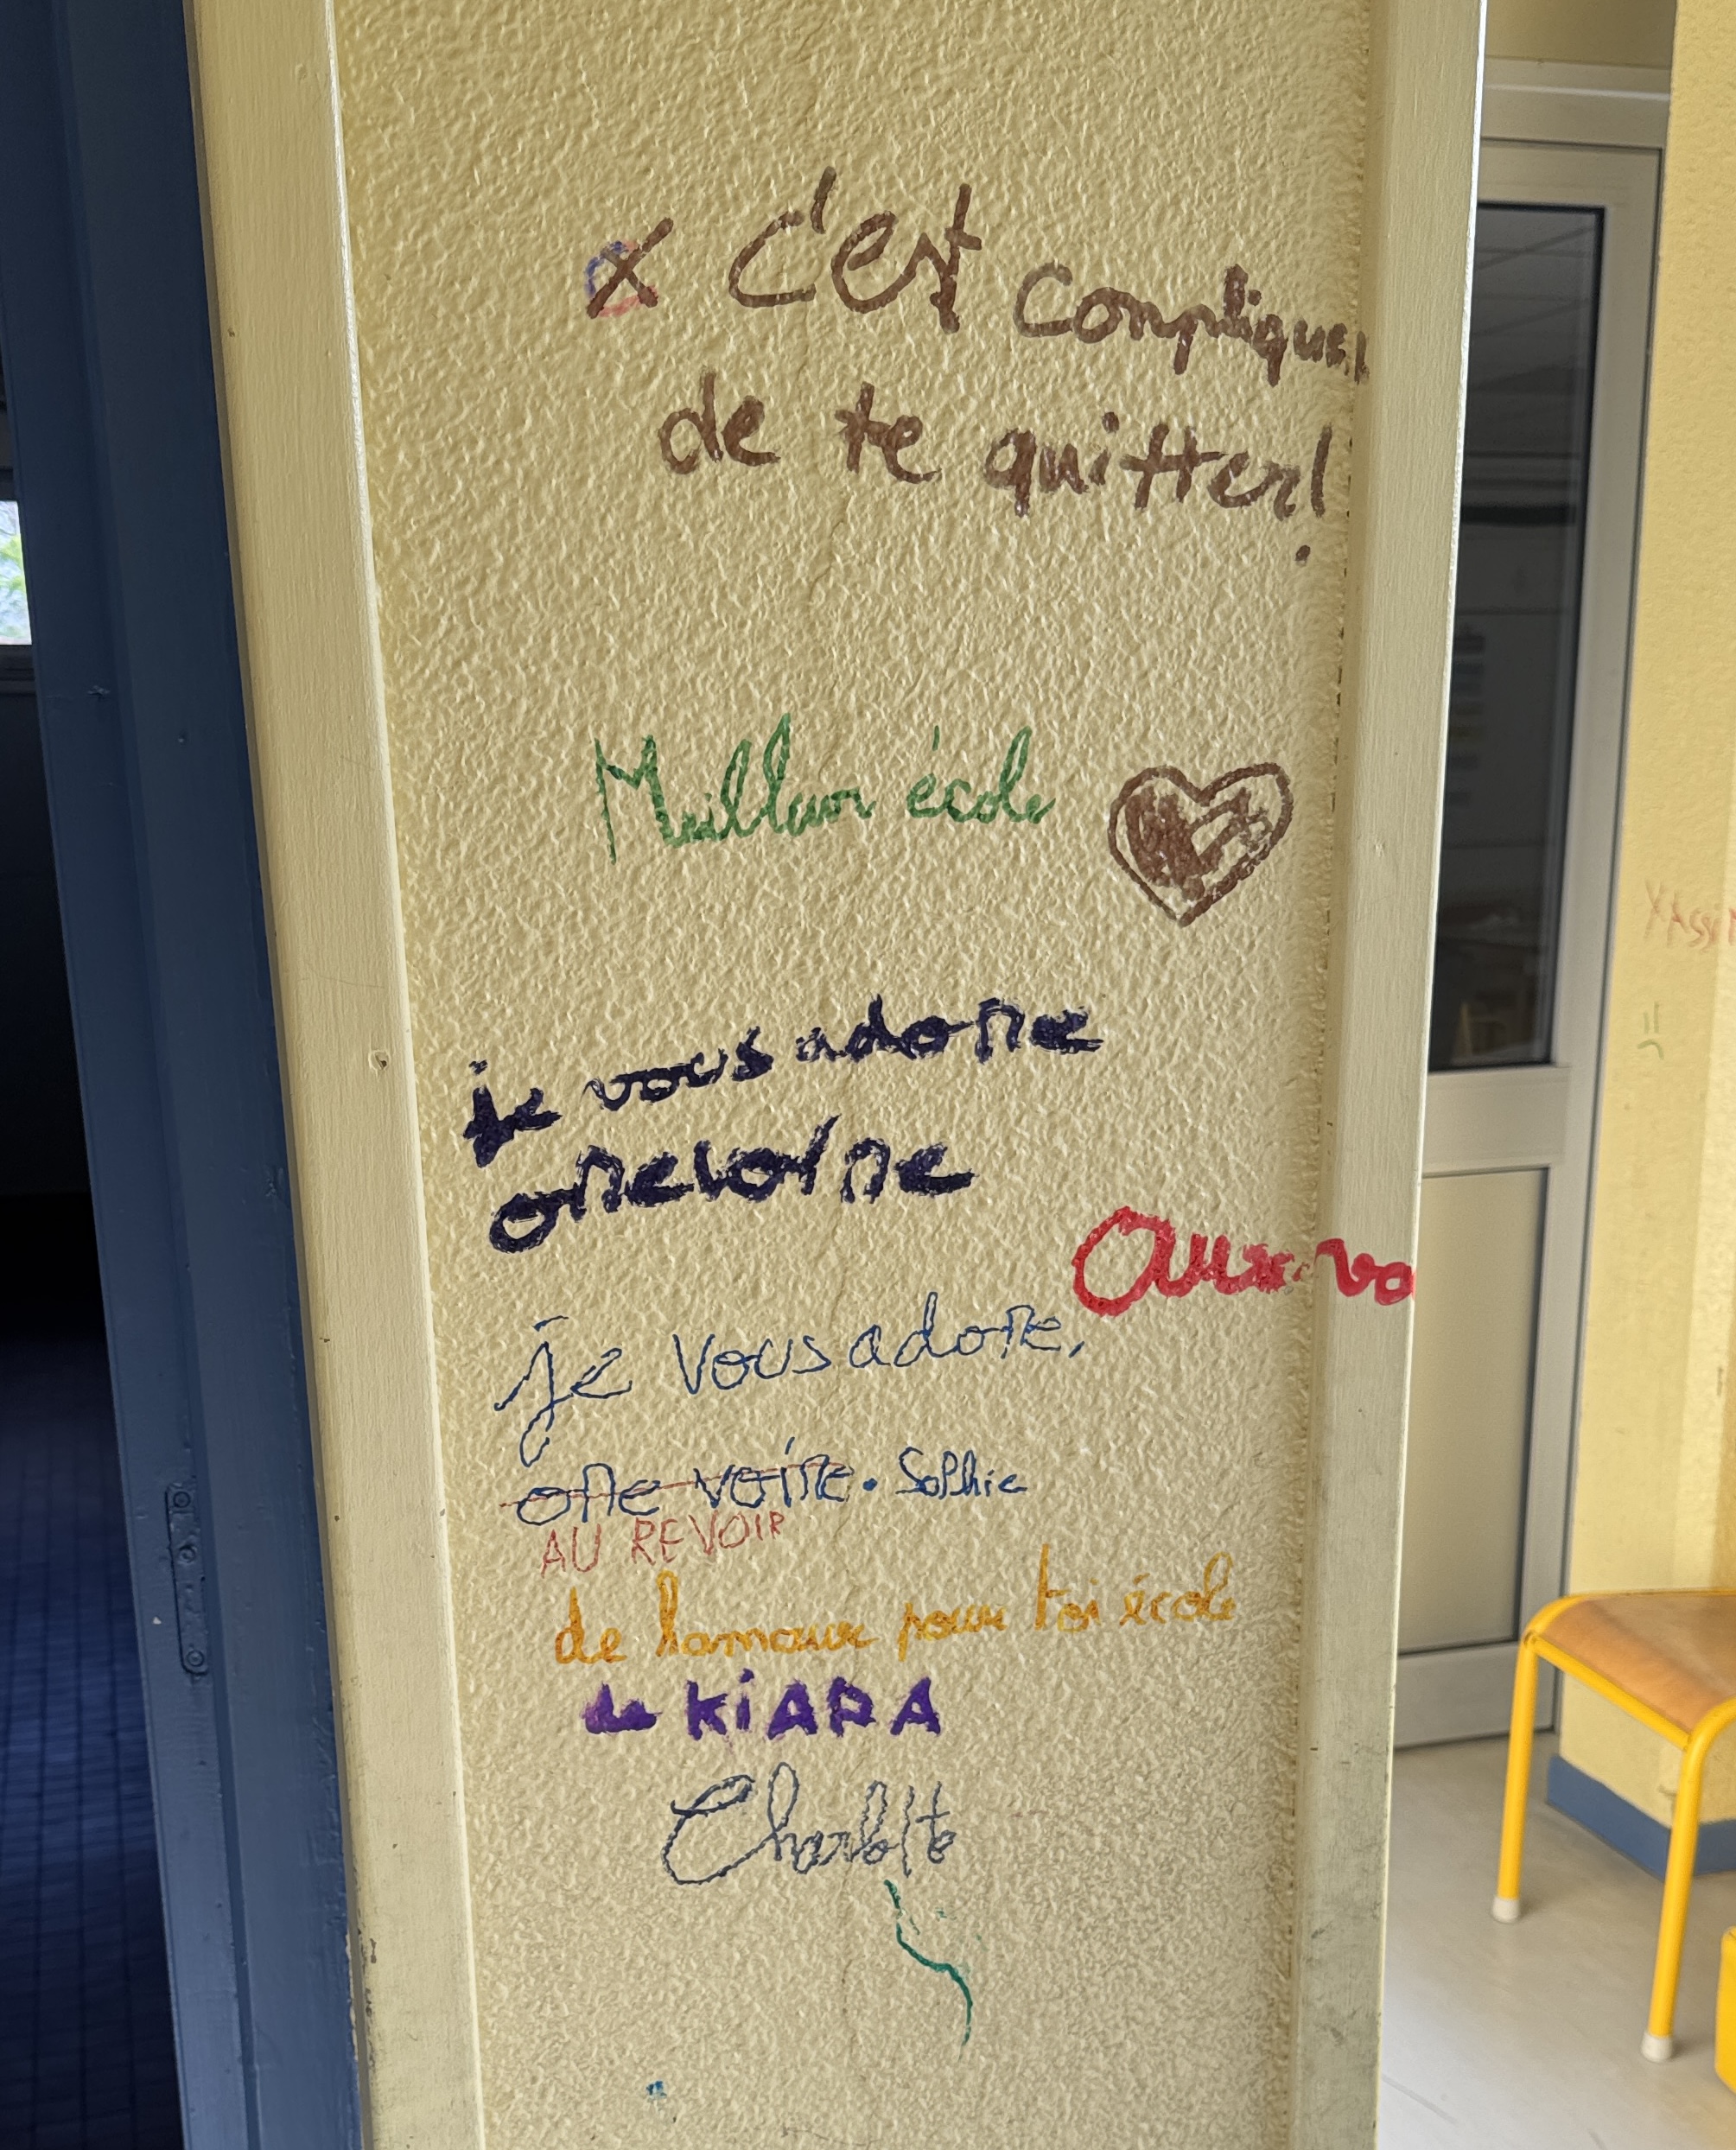 x c'est compliquer
de te quitter!
Meilleur école
je vous adore
orevoire
je vous adore,
ore voire. Sophie
AU REVOIR
de lamour pour toi école
de KiARA
Charlotte